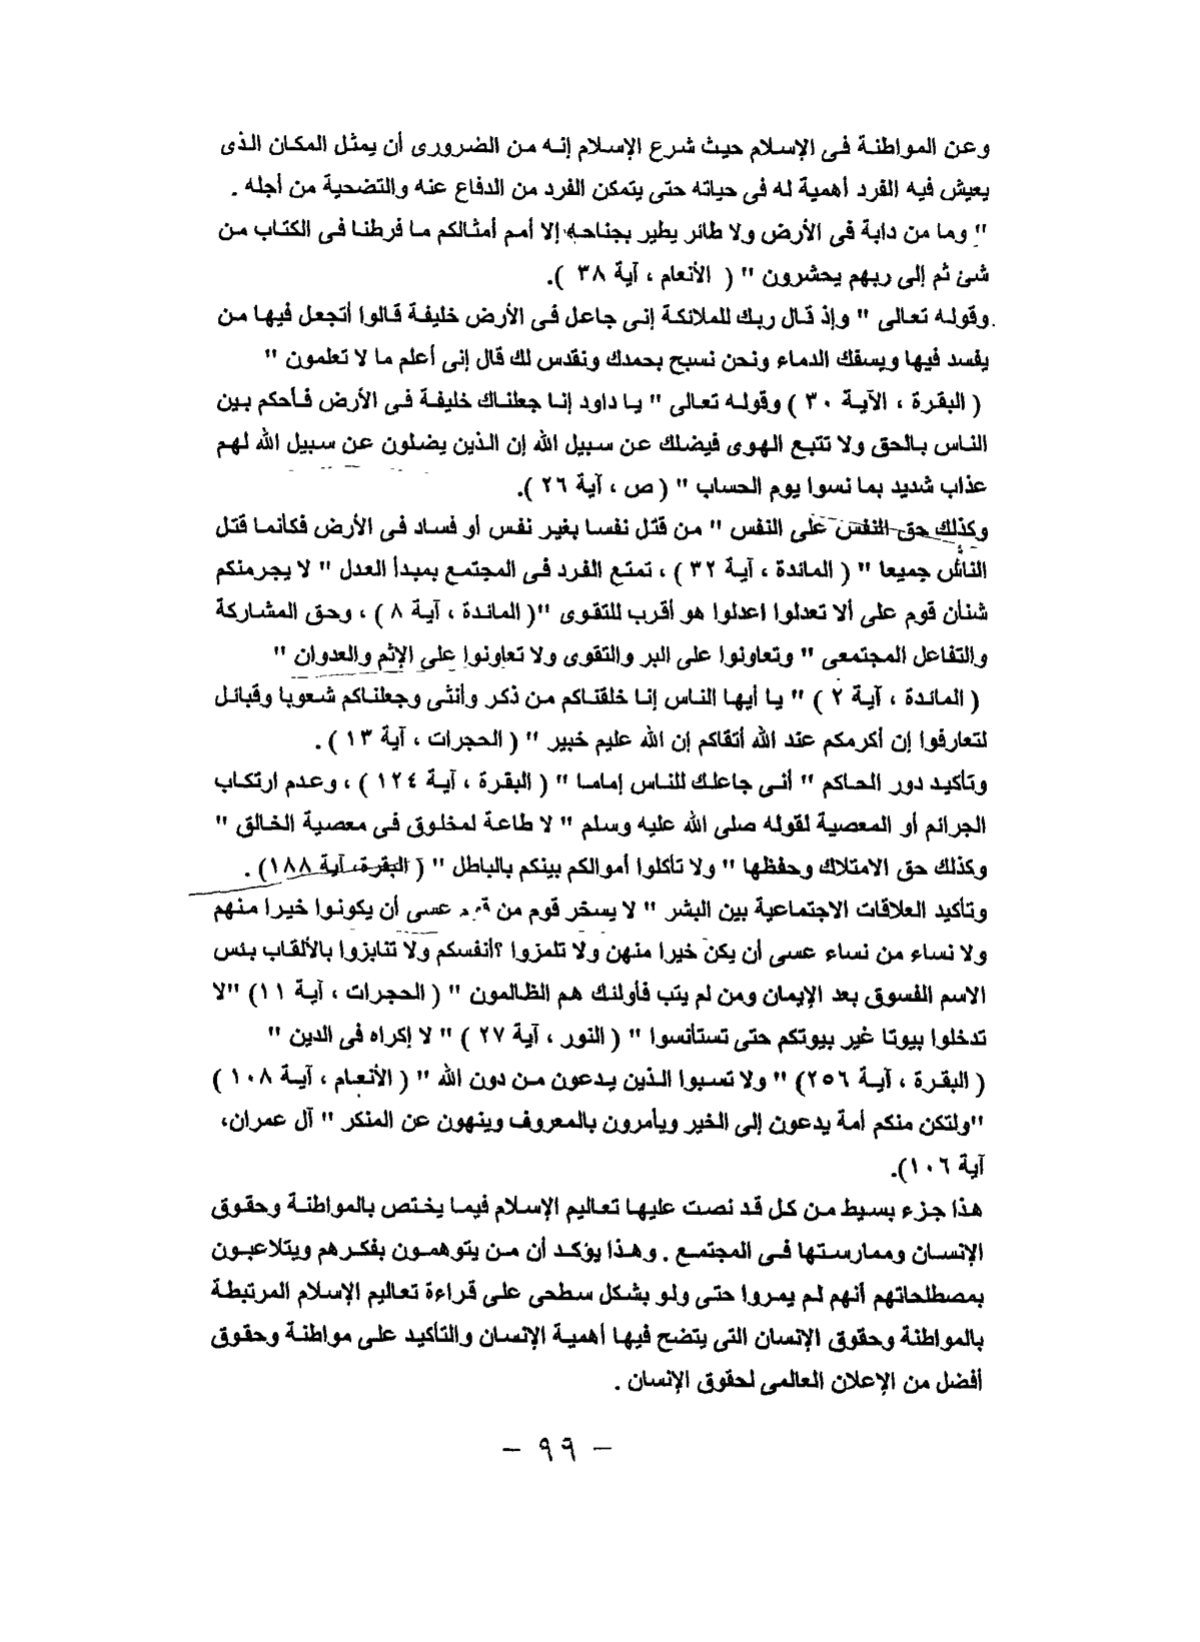 وعن المواطنة فى الإسلام حيث شرع الإسلام إنه من الضرورى أن يمثل المكان الذى
يعيش فيه الفرد أهمية له فى حياته حتى يتمكن الفرد من الدفاع عنه والتضحية من أجله .
" وما من دابة فى الأرض ولا طائر يطير بجناحه إلا أمم أمثالكم ما فرطنا فى الكتاب من
شئ ثم إلى ربهم يحشرون " ( الأنعام ، آية ٣٨ ).
وقوله تعالى " وإذ قال ربك للملائكة إنى جاعل فى الأرض خليفة قالوا أتجعل فيها من
يفسد فيها ويسفك الدماء ونحن نسبح بحمدك ونقدس لك قال إنى أعلم ما لا تعلمون "
( البقرة ، الآية ٣٠ ) وقوله تعالى " يا داود إنا جعلناك خليفة فى الأرض فأحكم بين
الناس بالحق ولا تتبع الهوى فيضلك عن سبيل الله إن الذين يضلون عن سبيل الله لهم
عذاب شديد بما نسوا يوم الحساب " ( ص ، آية ٢٦ ).
وكذلك حق النفس على النفس " من قتل نفسا بغير نفس أو فساد فى الأرض فكأنما قتل
الناس جميعا " ( المائدة ، آية ٣٢ ) ، تمتع الفرد فى المجتمع بمبدأ العدل " لا يجرمنكم
شنأن قوم على ألا تعدلوا اعدلوا هو أقرب للتقوى "( المائدة ، آية ٨ ) ، وحق المشاركة
والتفاعل المجتمعى " وتعاونوا على البر والتقوى ولا تعاونوا على الإثم والعدوان "
( المائدة ، آية ٢ ) " يا أيها الناس إنا خلقناكم من ذكر وأنثى وجعلناكم شعوبا وقبائل
لتعارفوا إن أكرمكم عند الله أتقاكم إن الله عليم خبير " ( الحجرات ، آية ١٣ ) .
وتأكيد دور الحاكم " أنى جاعلك للناس إماما " ( البقرة ، آية ١٢٤ ) ، وعدم ارتكاب
الجرائم أو المعصية لقوله صلى الله عليه وسلم " لا طاعة لمخلوق فى معصية الخالق "
وكذلك حق الامتلاك وحفظها " ولا تأكلوا أموالكم بينكم بالباطل " ( البقرة، آية ١٨٨) .
وتأكيد العلاقات الاجتماعية بين البشر " لا يسخر قوم من قوم عسى أن يكونوا خيرا منهم
ولا نساء من نساء عسى أن يكن خيرا منهن ولا تلمزوا ؟أنفسكم ولا تنابزوا بالألقاب بئس
الاسم الفسوق بعد الإيمان ومن لم يتب فأولئك هم الظالمون " ( الحجرات ، آية ١١) "لا
تدخلوا بيوتا غير بيوتكم حتى تستأنسوا " ( النور ، آية ٢٧ ) " لا إكراه فى الدين "
( البقرة ، آية ٢٥٦) " ولا تسبوا الذين يدعون من دون الله " ( الأنعام ، آية ١٠٨ )
"ولتكن منكم أمة يدعون إلى الخير ويأمرون بالمعروف وينهون عن المنكر " آل عمران،
آية ١٠٦).
هذا جزء بسيط من كل قد نصت عليها تعاليم الإسلام فيما يختص بالمواطنة وحقوق
الإنسان وممارستها فى المجتمع . وهذا يؤكد أن من يتوهمون بفكرهم ويتلاعبون
بمصطلحاتهم أنهم لم يمروا حتى ولو بشكل سطحى على قراءة تعاليم الإسلام المرتبطة
بالمواطنة وحقوق الإنسان التى يتضح فيها أهمية الإنسان والتأكيد على مواطنة وحقوق
أفضل من الإعلان العالمى لحقوق الإنسان .
- ٩٩ -